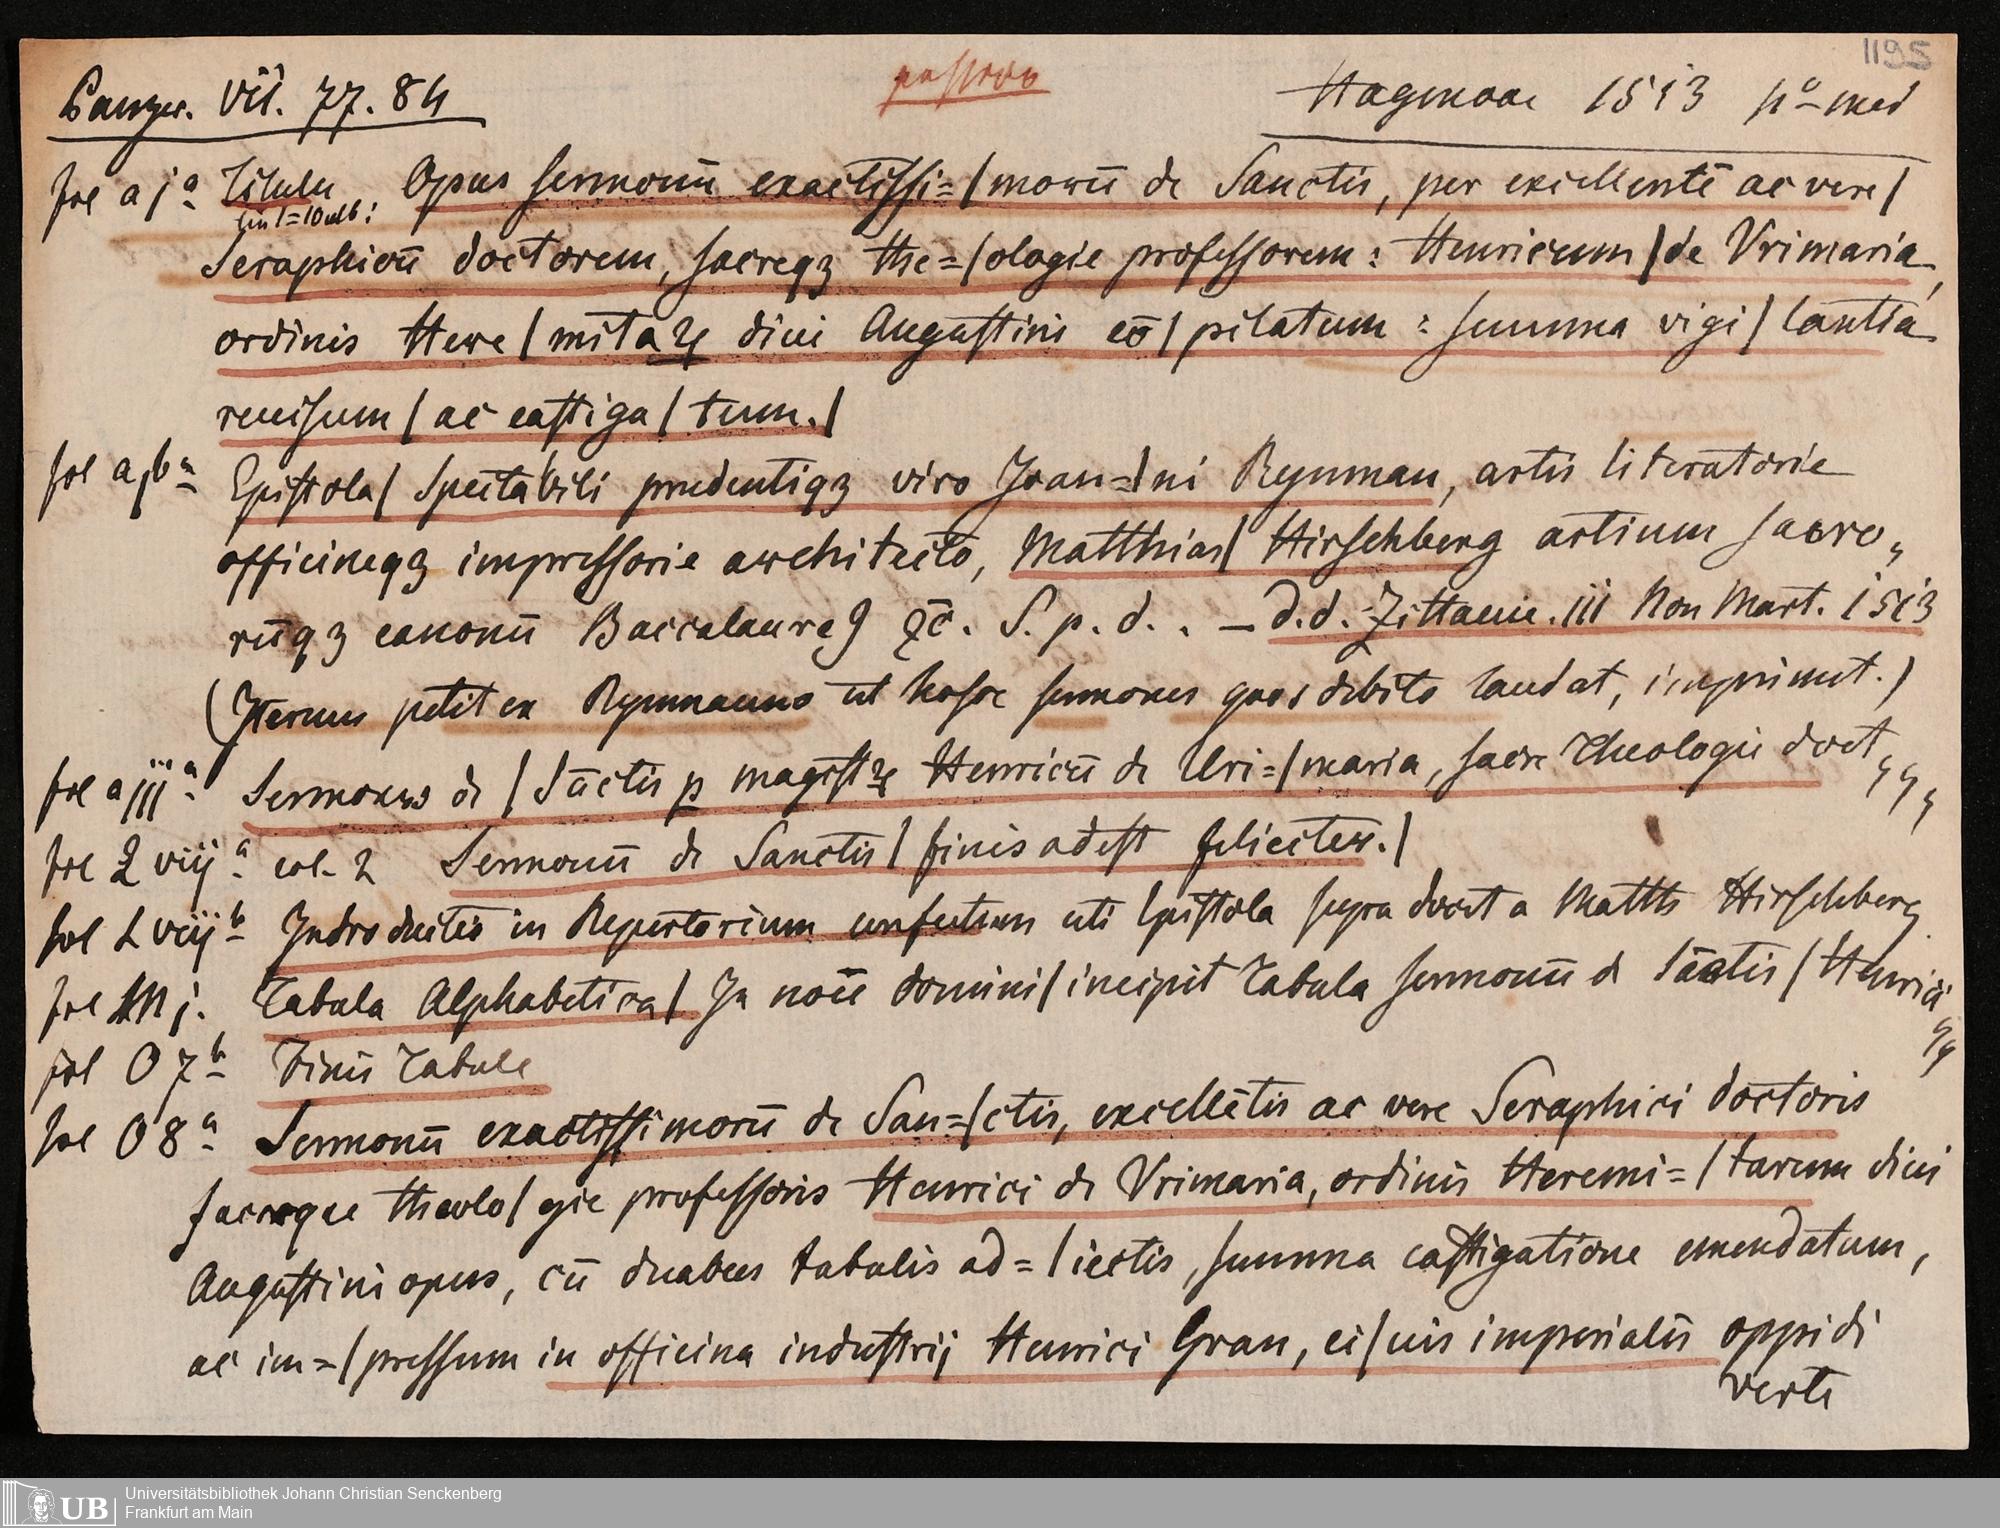 1195
Panzer. VII. 77. 84 Hagenoae 1513 4º med
fol a jª Titulu Opus sermonū exactissi=/morū de Sanctis, per excellentē ac vere/
Seraphicū doctorem, sacreqꝫ the=/ologie professorem: Henricum/de Vrimaria,
ordinis Here/mitaꝝ diui Augustini cō/pilatum: summa vigi/lantia
reuisum/ac castiga/tum./
fol a jbª Epistola/ Spectabili prudentiqꝫ viro Joan=/ni Rynman, artis literatorie
officineqꝫ impressorie architecto, Matthias/ Hirschberg artium sacro„
rūqꝫ canonū Baccalaureꝯ ꝛc̄. S. p. d.. — d.d. Zittauie. iii Non Mart. 1513
(Iterum petit ex Rynmanno ut hosce sermones quos debito laudat, imprimat.)
fol a iijª Sermones de / Sāctis p magistꝝ Henricū de Uri=/maria, sacre Theologie doct
fol L viijª col. 2 Sermonū de Sanctis/ finis adest feliciter./
fol L viijᵇ Introductio in Repertorium confectum uti Epistola supra docet a Matth Hirschberg
fol M j. Tabula Alphabetica/ In noīe domini/incipit Tabula sermonū d Sāctis/ Henrici
fol O 7ᵇ Finis Tabule
fol O 8ª Sermonū exactissimorū de San=/ctis, excellētis ac vere Seraphici doctoris
sacreque theolo/gie professoris Henrici de Vrimaria, ordinis Heremi=/tarum diui
Augustini opus, cū duabus tabulis ad=/iectis, summa castigatione emendatum,
ac im=/pressum in officina industrij Henrici Gran, ci/uis imperialis oppidi
verte
UB
Universitätsbibliothek Johann Christian Senckenberg
Frankfurt am Main